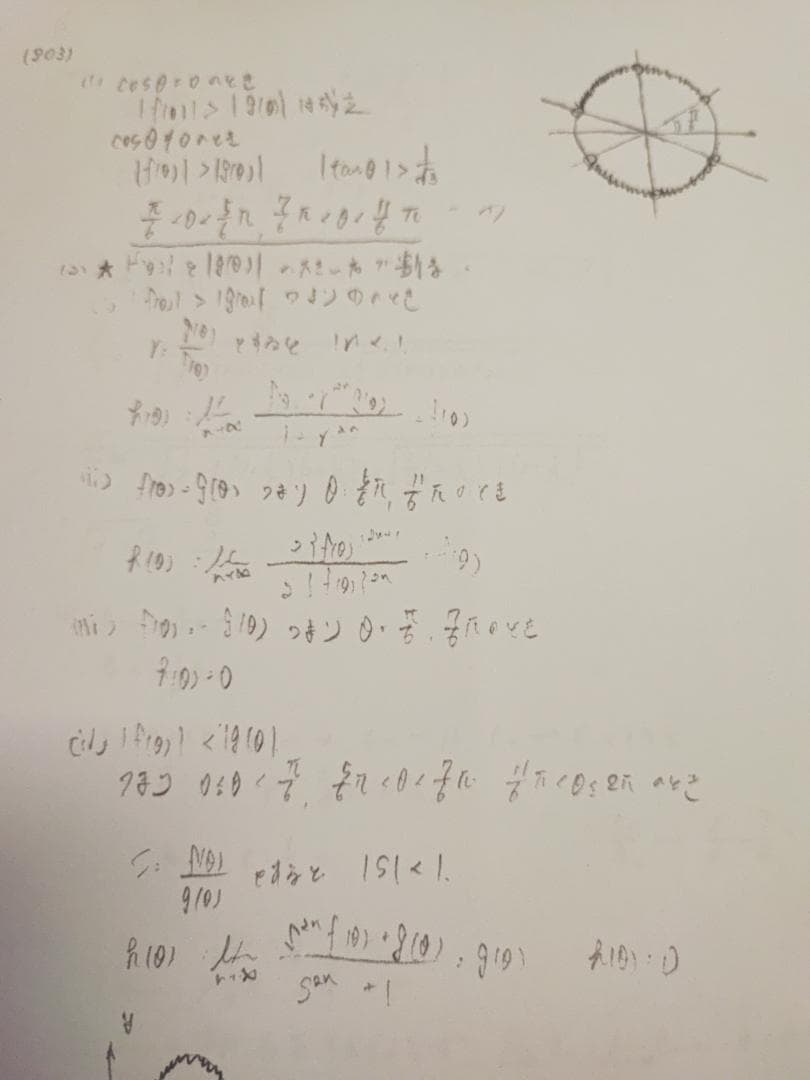 (803)
(1) cosθ=0のとき
|f(θ)|>|g(θ)| は成立
cosθ≠0のとき
|f(θ)|>|g(θ)| |tanθ|>1/√3
π/6<θ<5/6π, 7/6π<θ<11/6π
(2) ★ |f(θ)|と|g(θ)|の大きい方で割る.
|f(θ)|>|g(θ)| つまり(1)のとき
r=g(θ)/f(θ) とすると |r|<1.
h(θ)=lim n→∞ (f(θ)+r^2n g(θ))/(1+r^2n)=f(θ)
ii) f(θ)=g(θ) つまり θ=5/6π, 11/6πのとき
h(θ)=lim n→∞ 2{f(θ)}^2n+1/2{f(θ)}^2n=f(θ)
iii) f(θ)=-g(θ) つまり θ=π/6, 7/6πのとき
h(θ)=0
(iv) |f(θ)|<|g(θ)|
つまり 0≤θ<π/6, 5/6π<θ<7/6π 11/6π<θ≤2πのとき
S=f(θ)/g(θ) とすると |S|<1.
h(θ)=lim n→∞ (S^2n f(θ)+g(θ))/(S^2n+1)=g(θ) h(θ)=0